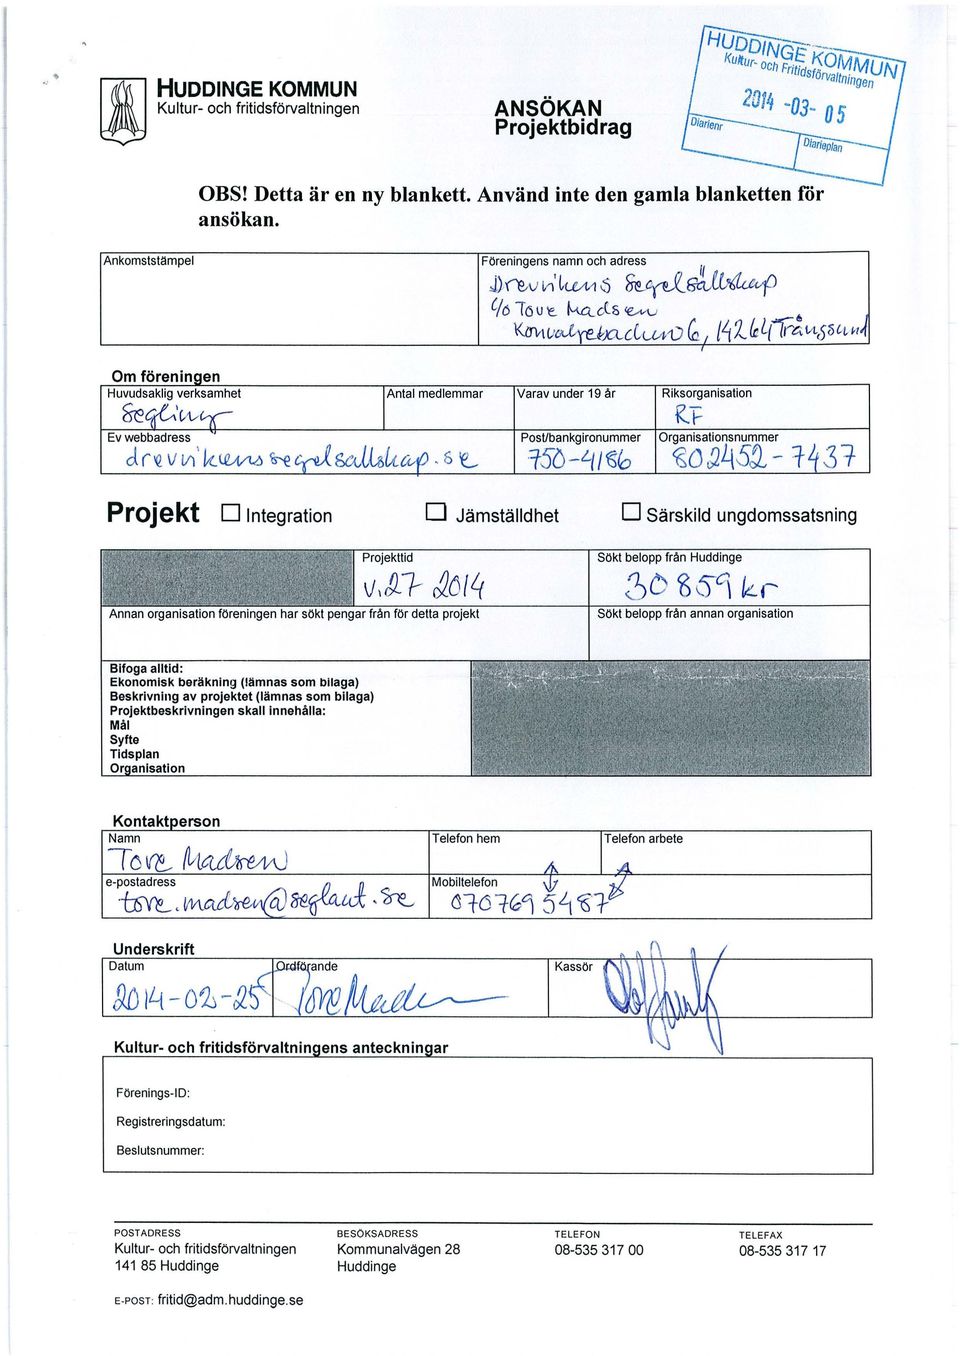 HUDDINGE KOMMUN
Kultur- och fritidsförvaltningen
ANSÖKAN
Projektbidrag
HUDDINGE KOMMUN
Kultur- och Fritidsförvaltningen
2014 -03- 05
Diarienr
Diarieplan
OBS! Detta är en ny blankett. Använd inte den gamla blanketten för
ansökan.
Ankomststämpel
Föreningens namn och adress
Drevvikens Segelsällskap
c/o Tove Madsen
Konvaljebacken 6, 142 64 Trångsund
Om föreningen
Huvudsaklig verksamhet
Antal medlemmar
Varav under 19 år
Riksorganisation
Segling
RF
Ev webbadress
Post/bankgironummer
Organisationsnummer
drevvikenssegelsallskap.se
750-4186
802452-7437
Projekt
Integration
Jämställdhet
Särskild ungdomssatsning
Projekttid
Sökt belopp från Huddinge
v.27 2014
30 859 kr
Annan organisation föreningen har sökt pengar från för detta projekt
Sökt belopp från annan organisation
Bifoga alltid:
Ekonomisk beräkning (lämnas som bilaga)
Beskrivning av projektet (lämnas som bilaga)
Projektbeskrivningen skall innehålla:
Mål
Syfte
Tidsplan
Organisation
Kontaktperson
Namn
Telefon hem
Telefon arbete
Tove Madsen
e-postadress
Mobiltelefon
tove.madsen@seglaut.se
070769 5487
Underskrift
Datum
Ordförande
Kassör
2014-02-25
Tove Madsen
Kultur- och fritidsförvaltningens anteckningar
Förenings-ID:
Registreringsdatum:
Beslutsnummer:
POSTADRESS
BESÖKSADRESS
TELEFON
TELEFAX
Kultur- och fritidsförvaltningen
Kommunalvägen 28
08-535 317 00
08-535 317 17
141 85 Huddinge
Huddinge
E-POST: fritid@adm.huddinge.se